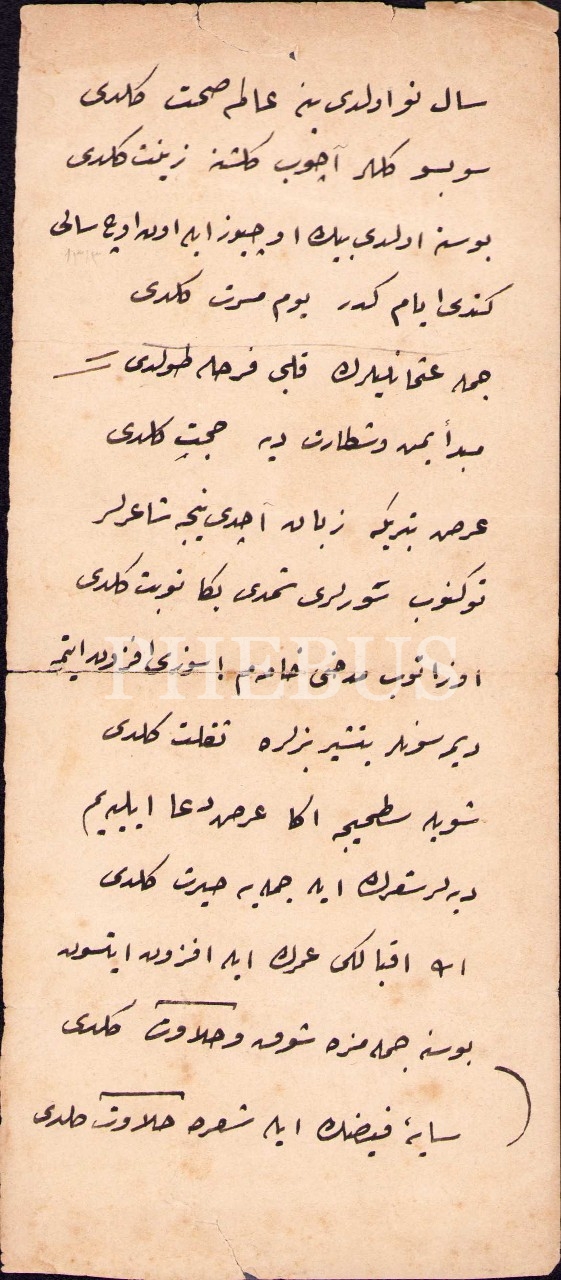 سال نو اولدی ینه عالمه صحت كلدی
سو بسو كللر آچوب كلشنه زینت كلدی
بو سنه اولدی بیك اوچیوز ایله اون اوچ سالی
١٣١٣
كتدی ایام كدر یوم مسرت كلدی
جمله عثمانیلرك قلبی فرحله طولدی
مبدأ یمن و شطارت دیه حجت كلدی
عرض تبریكه زبان آچدی نیجه شاعرلر
توكنوب سورلری شمدی بكا نوبت كلدی
اوزاتوب مدحی خامه م سوزی افزون ایتمه
دیمسونلر یتیشیر بزلره ثقلت كلدی
شویله سطحیجه اكا عرض دعا ایلیه یم
دیرلر شعرك ایله جمله یه حیرت كلدی
الله اقبالكی عمرك ایله افزون ایتسون
بو سنه جمله مزه شوق و حلاوت كلدی
سایهٔ فیضك ایله شعره حلاوت كلدی
PHEBUS